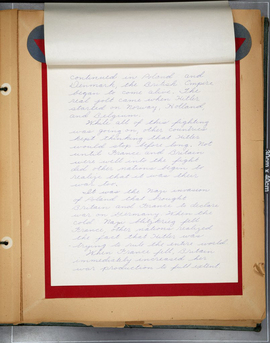 continued in Poland and
Denmark, the British Empire
began to come alive. The
real jolt came when Hitler
started in Norway, Holland
and Belgium.
While all of this fighting
was going on other countries
kept thinking that Hitler
would stop before long. Not
until France and Britain
were well into the fight
did other nations begin to
realize that it was their
war, too.
It was the Nazi invasion
of Poland that brought
Britain and France to declare
war on Germany. When the
Nazi blitzkrieg fell
France, other nations realized
the fact that Hitler was
trying to rule the entire world.
When France fell Britain
immediately increased her
war production to full extent.